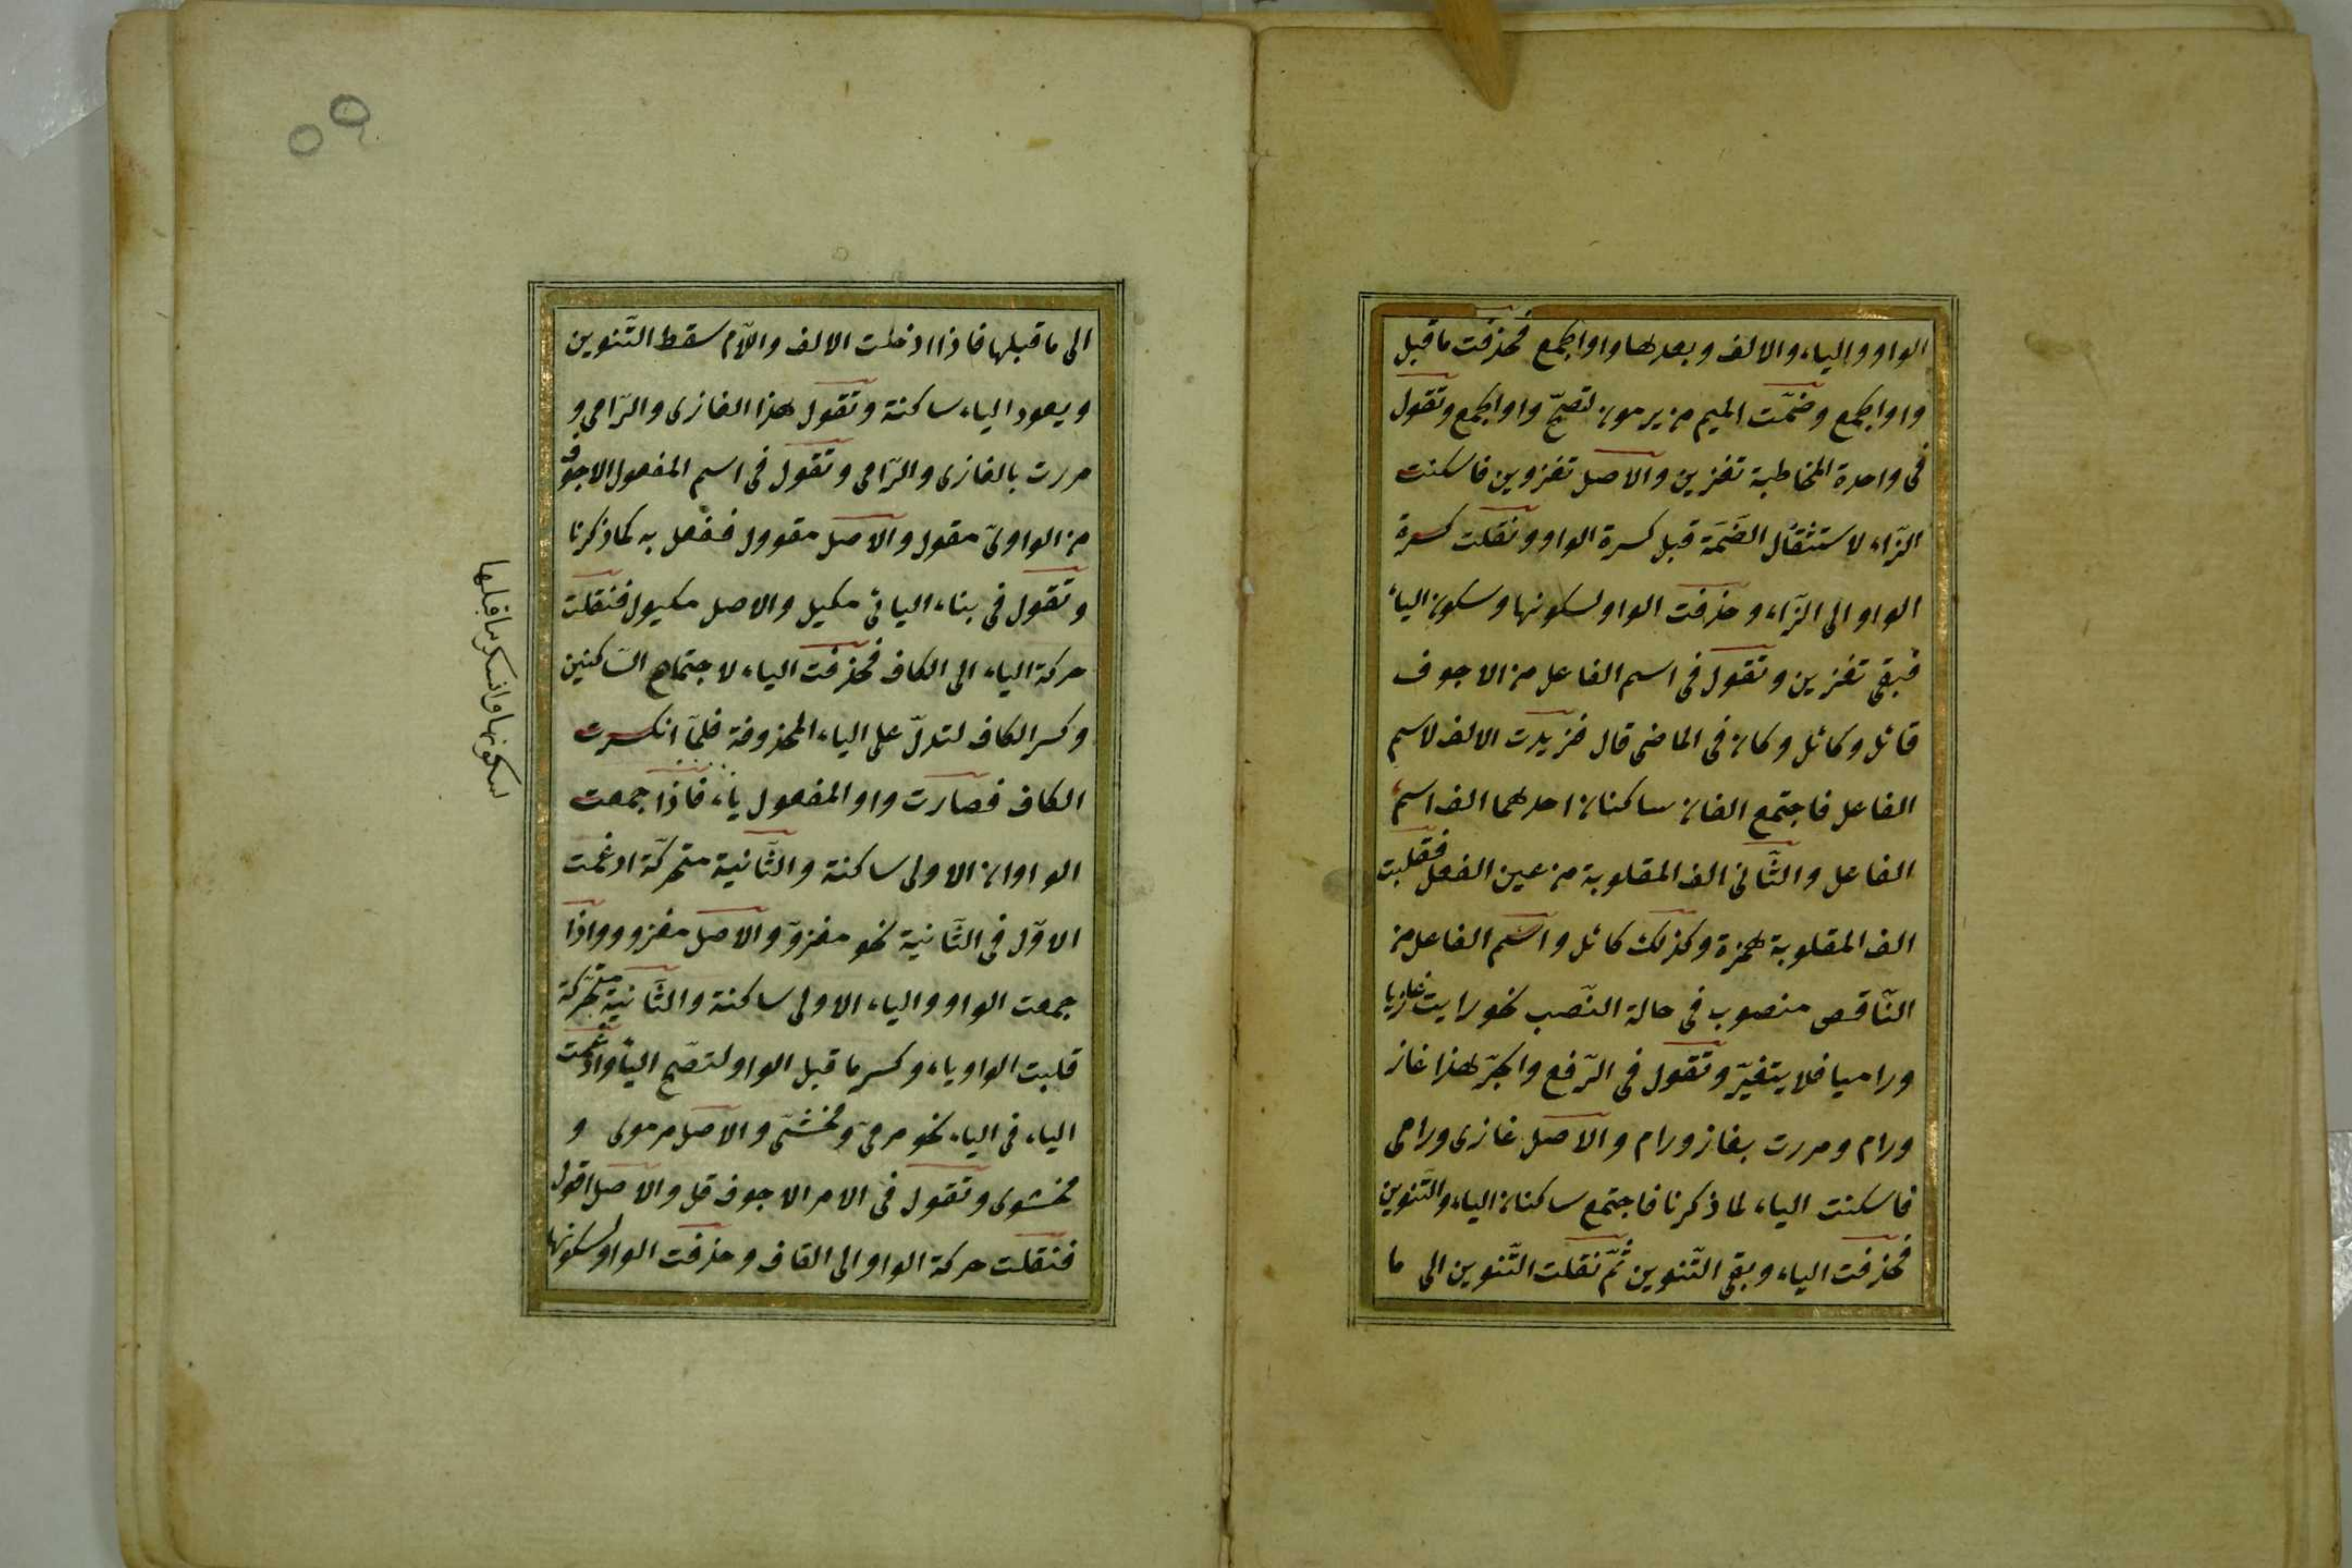 الواو والياء والالف وبعدها واو الجمع فحذفت ما قبل
واو الجمع وضمّت الميم من يرمون لتصحّ واو الجمع وتقول
فى واحدة المخاطبة تغزين والاصل تغزوين فاسكنت
الزّاء لاستثقال الضّمّة قبل كسرة الواو ونقلت كسرة
الواو الى الزّاء وحذفت الواو لسكونها وسكون الياء
فبقى تغزين وتقول فى اسم الفاعل من الاجوف
قائل وكائل وكان فى الماضى قال فزيدت الالف لاسم
الفاعل فاجتمع الفان ساكنان احدهما الف اسم
الفاعل والثّانى الف المقلوبة من عين الفعل فقلبت
الف المقلوبة همزة وكذلك كائل واسم الفاعل من
النّاقص منصوب فى حالة النّصب نحو رايت غازيا
وراميا فلا يتغيّر وتقول فى الرّفع والجرّ هذا غاز
ورام ومررت بغاز ورام والاصل غازى ورامى
فاسكنت الياء لما ذكرنا فاجتمع ساكنان الياء والتّنوين
فحذفت الياء وبقى التّنوين ثمّ نقلت التّنوين الى ما
٥٩
الى ما قبلها فاذا ادخلت الالف واللّام سقط التّنوين
ويعود الياء ساكنة وتقول هذا الغازى والرّامى و
مررت بالغازى والرّامى وتقول فى اسم المفعول الاجوف
من الواوىّ مقول والاصل مقوول ففعل به كما ذكرنا
وتقول فى بناء اليائى مكيل والاصل مكيول فنقلت
حركة الياء الى الكاف فحذفت الياء لاجتماع السّاكنين
وكسر الكاف لتدلّ على الياء المحذوفة فلمّا انكسرت
الكاف فصارت واو المفعول ياء فاذا جمعت
الواوان الاولى ساكنة والثّانية متحركة ادغمت
الاوّل فى الثّانية نحو مغزوّ والاصل مغزوو واذا
جمعت الواو والياء الاولى ساكنة والثّانية متحركة
قلبت الواو ياء وكسر ما قبل الواو لتصحّ الياء وادغمت
الياء فى الياء نحو مرمىّ ومخشىّ والاصل مرموى و
مخشوى وتقول فى الامر الاجوف قل والاصل اقول
فنقلت حركة الواو الى القاف وحذفت الواو لسكونها
لسكونها وانكسر ما قبلها